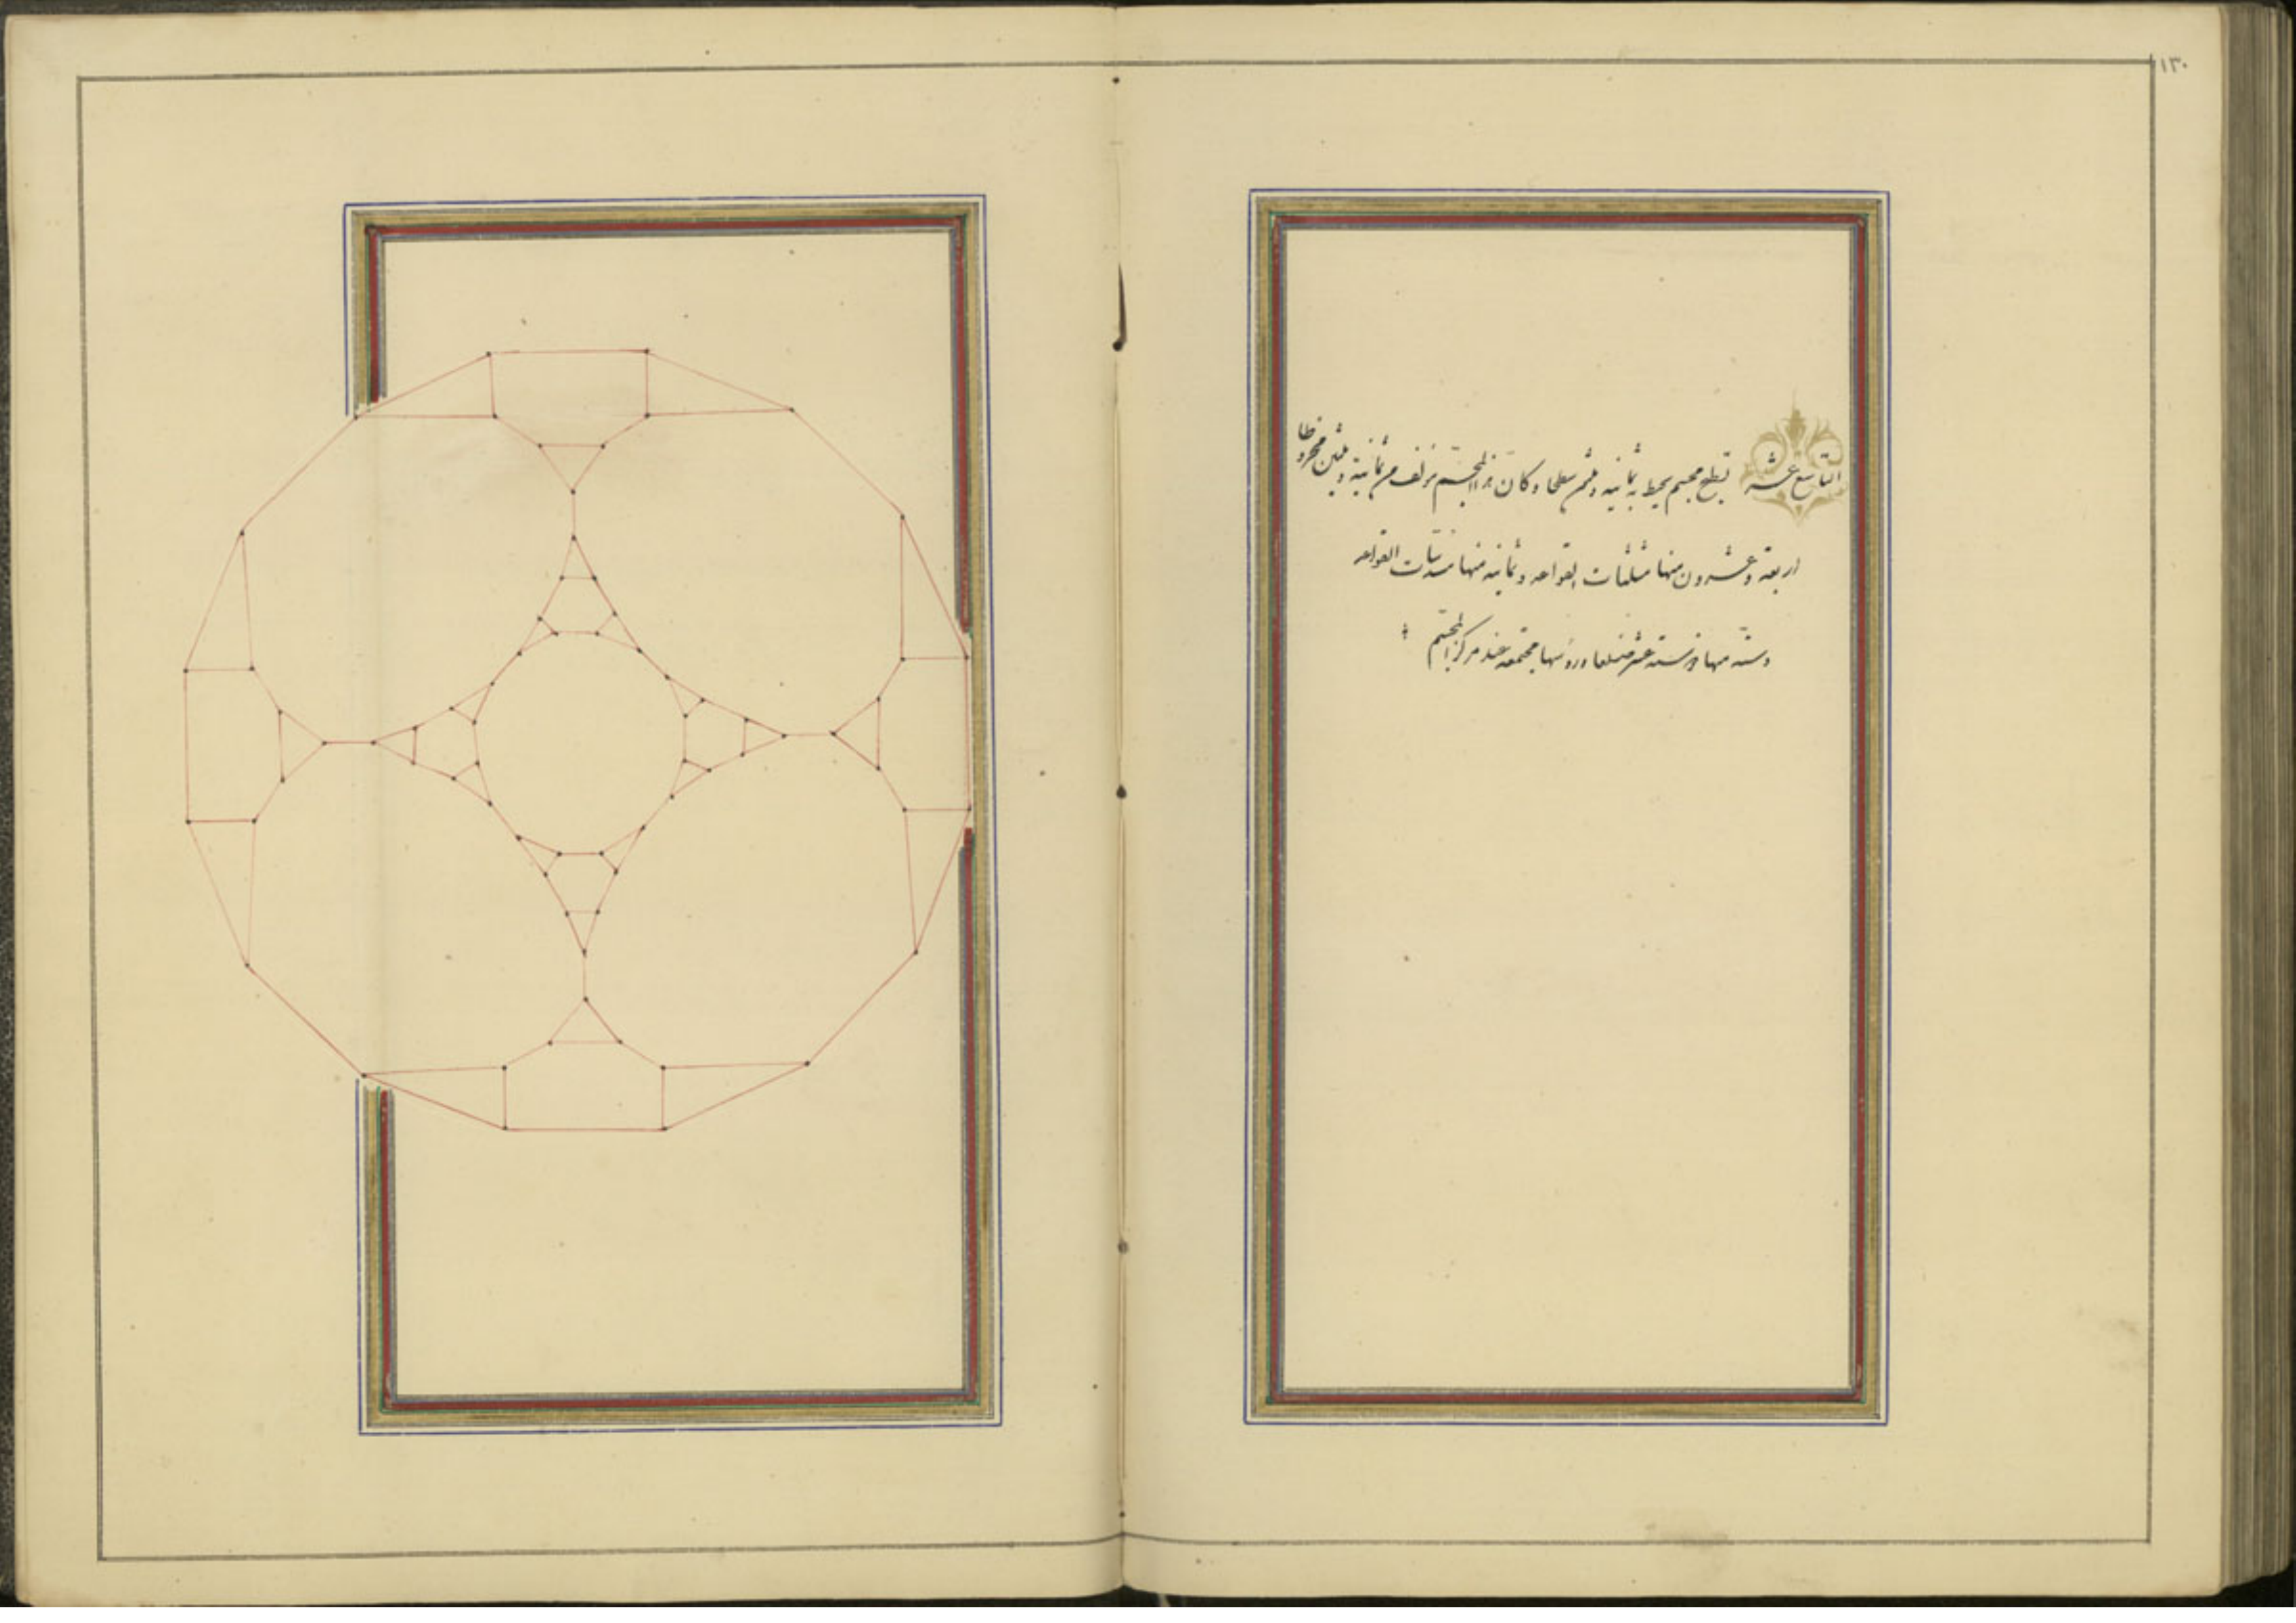 ١٣٠
التاسع عشر قطع مجسم يحيط به ثمانية وثلثون سطحا وكان هذا المجسم تركف من ثمانية وثلثين مخروطا
اربعة وعشرون منها مثلثات القواعد وثمانية منها مسدسات القواعد
وستة منها ذو ستة عشر ضلعا ورؤسها مجتمعة عند مركز المجسم